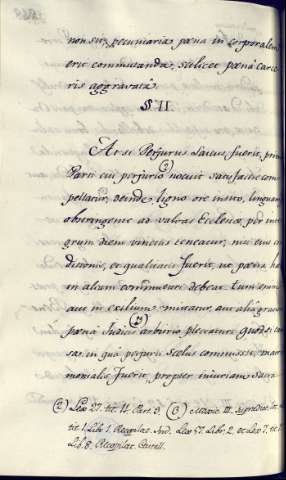 non sit, pecuniaria pœna in corporalem
erit commutanda, scilicet pœna carce
ris aggravata.
§ VI.
At si Perjurus Laicus fuerit, prius
Parti cui perjurio nocuit satisfacere com
pellatur, deinde ligno ore inserto, linguam
obstringente ad valvas Ecclesiæ per inte
grum diem vinctus teneatur, nisi
ditionis, et qualitatis fuerit, ut pœna hæc
in aliam commutari debeat. Tum enim
aut in exilium mittatur, aut alia graviori
pœna Judicis arbitrio plectatur
sa, in qua perjurii scelus commissum, matri
monialis fuerit, propter injuriam Sacra
(2) Lex 27. tit. 11. Part. 3. (3)
tit. 1. Lib. 1. Recopilat. Ind. Lex 57. Libr. 2. et Lex 7. tit. 1.
Lib. 8. Recopilat. Castell.